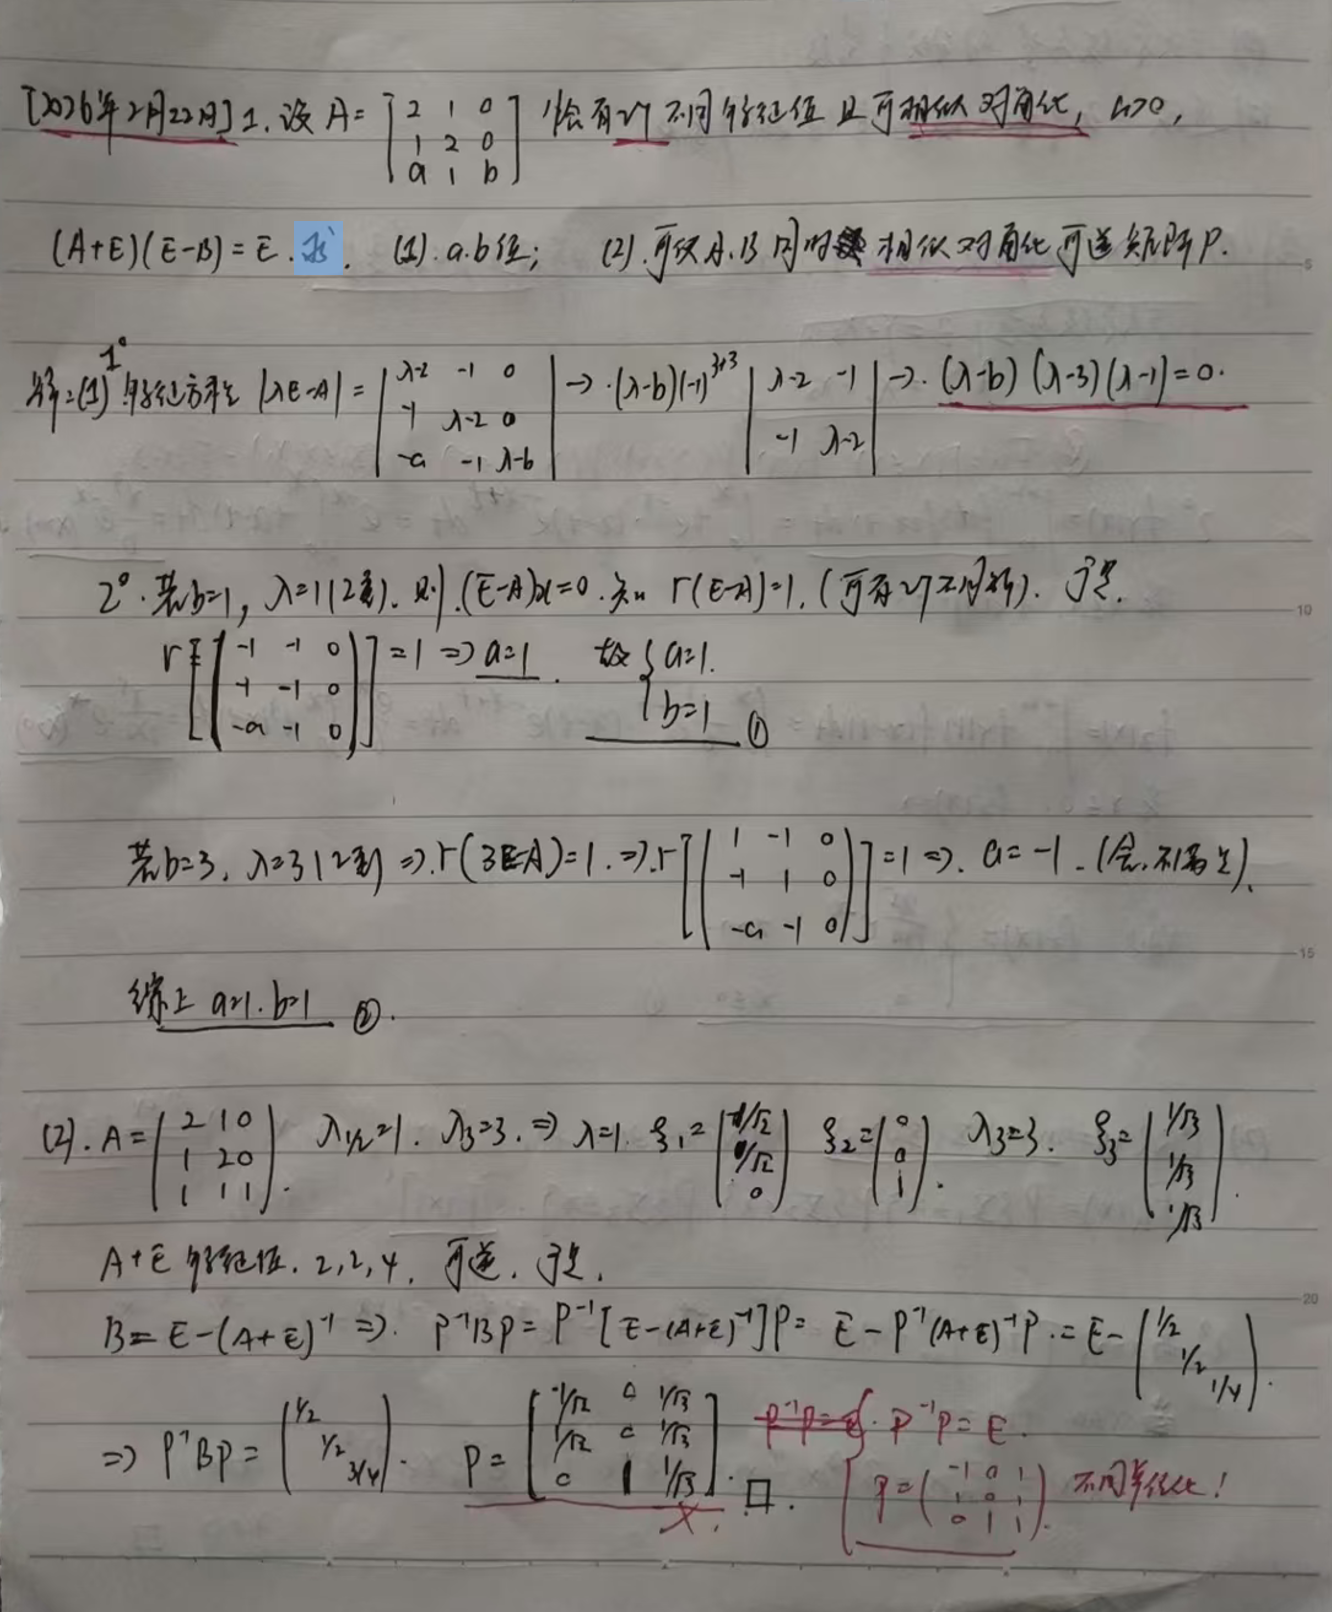 [2026年2月22日] 1. 设 A= [2 1 0; 1 2 0; a 1 b] 恰有2个不同特征值且可相似对角化, a>0,
(A+E)(E-B)=E. 求. (1). a.b值; (2). 可使A.B同时相似对角化可逆矩阵P.
解:(1) 1° 特征方程 |λE-A| = |λ-2 -1 0; -1 λ-2 0; -a -1 λ-b| → (λ-b)(-1)³⁺³ |λ-2 -1; -1 λ-2| → (λ-b)(λ-3)(λ-1)=0.
2°. 若b=1, λ=1(2重). 则.(E-A)x=0. 知 r(E-A)=1. (可有2个不同解). 于是.
r[(-1 -1 0; -1 -1 0; -a -1 0)] = 1 ⇒ a=1. 故 { a=1. b=1 ①
若b=3, λ=3(2重) ⇒ r(3E-A)=1. ⇒ r[(1 -1 0; -1 1 0; -a -1 0)] =1 ⇒. a=-1. (舍.不满足).
综上 a=1. b=1 ②.
(2). A= (2 1 0; 1 2 0; 1 1 1). λ₁/₂=1. λ₃=3. ⇒ λ=1. ξ₁= (-1/√2; 1/√2; 0) ξ₂= (0; 0; 1). λ₃=3. ξ₃= (1/√3; 1/√3; 1/√3).
A+E 特征值. 2,2,4. 可逆. 于是.
B= E-(A+E)⁻¹ ⇒. P⁻¹BP= P⁻¹[E-(A+E)⁻¹]P= E-P⁻¹(A+E)⁻¹P. = E- (1/2 1/2 1/4).
⇒ P⁻¹BP= (1/2 1/2 3/4). P= [-1/√2 0 1/√3; 1/√2 0 1/√3; 0 1 1/√3]. □. ×. P⁻¹P=E.
P= (-1 0 1; 1 0 1; 0 1 1). 不用单位化!